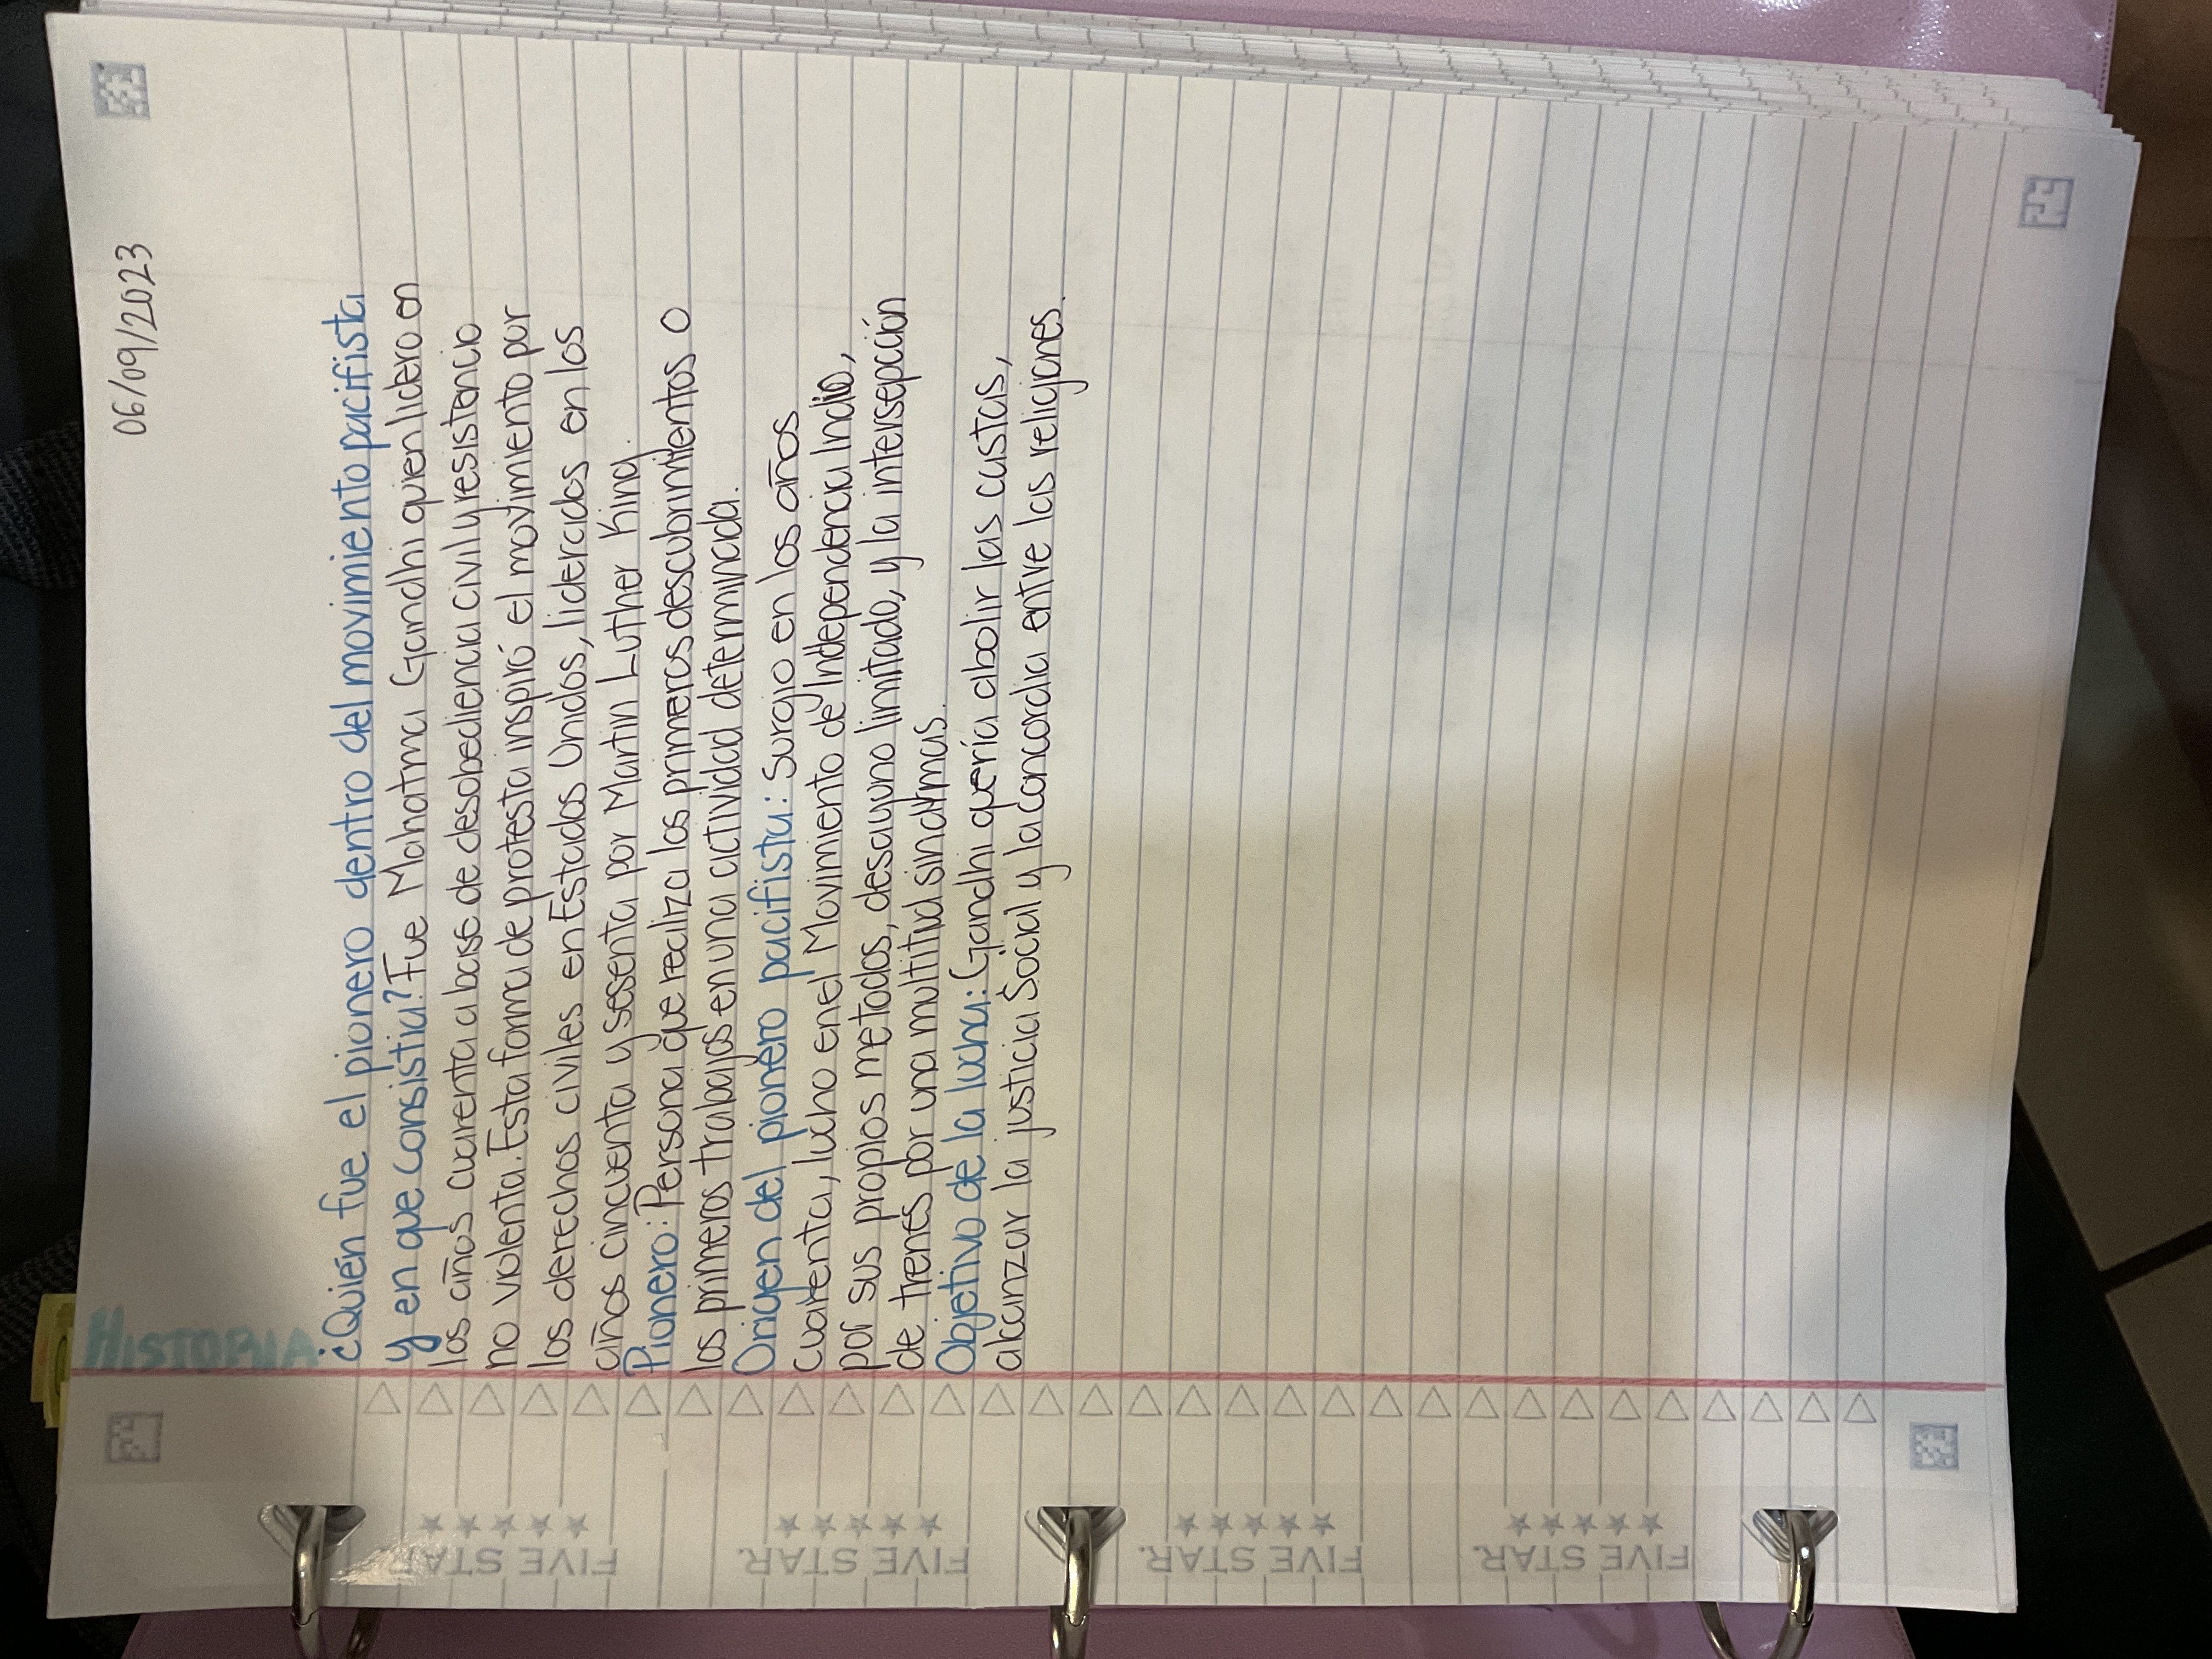 06/09/2023
HISTORIA
¿Quién fue el pionero dentro del movimiento pacifista
y en que consistia? Fue Mahatma Gandhi quien lidero en
los años cuarenta a base de desobediencia civil y resistencia
no violenta. Esta forma de protesta inspiró el movimiento por
los derechos civiles en Estados Unidos, liderados en los
años cincuenta y sesenta por Martin Luther King.
Pionero: Persona que realiza los primeros descubrimientos o
los primeros trabajos en una actividad determinada.
Origen del pionero pacifista: Surgio en los años
cuarenta, lucho en el Movimiento de Independencia India,
por sus propios metodos, desayuno limitado, y la intersepción
de trenes por una multitud sin armas.
Objetivo de la lucha: Gandhi quería abolir las castas,
alcanzar la justicia Social y la concordia entre las religiones.
FIVE STAR.
FIVE STAR.
FIVE STAR.
FIVE STAR.